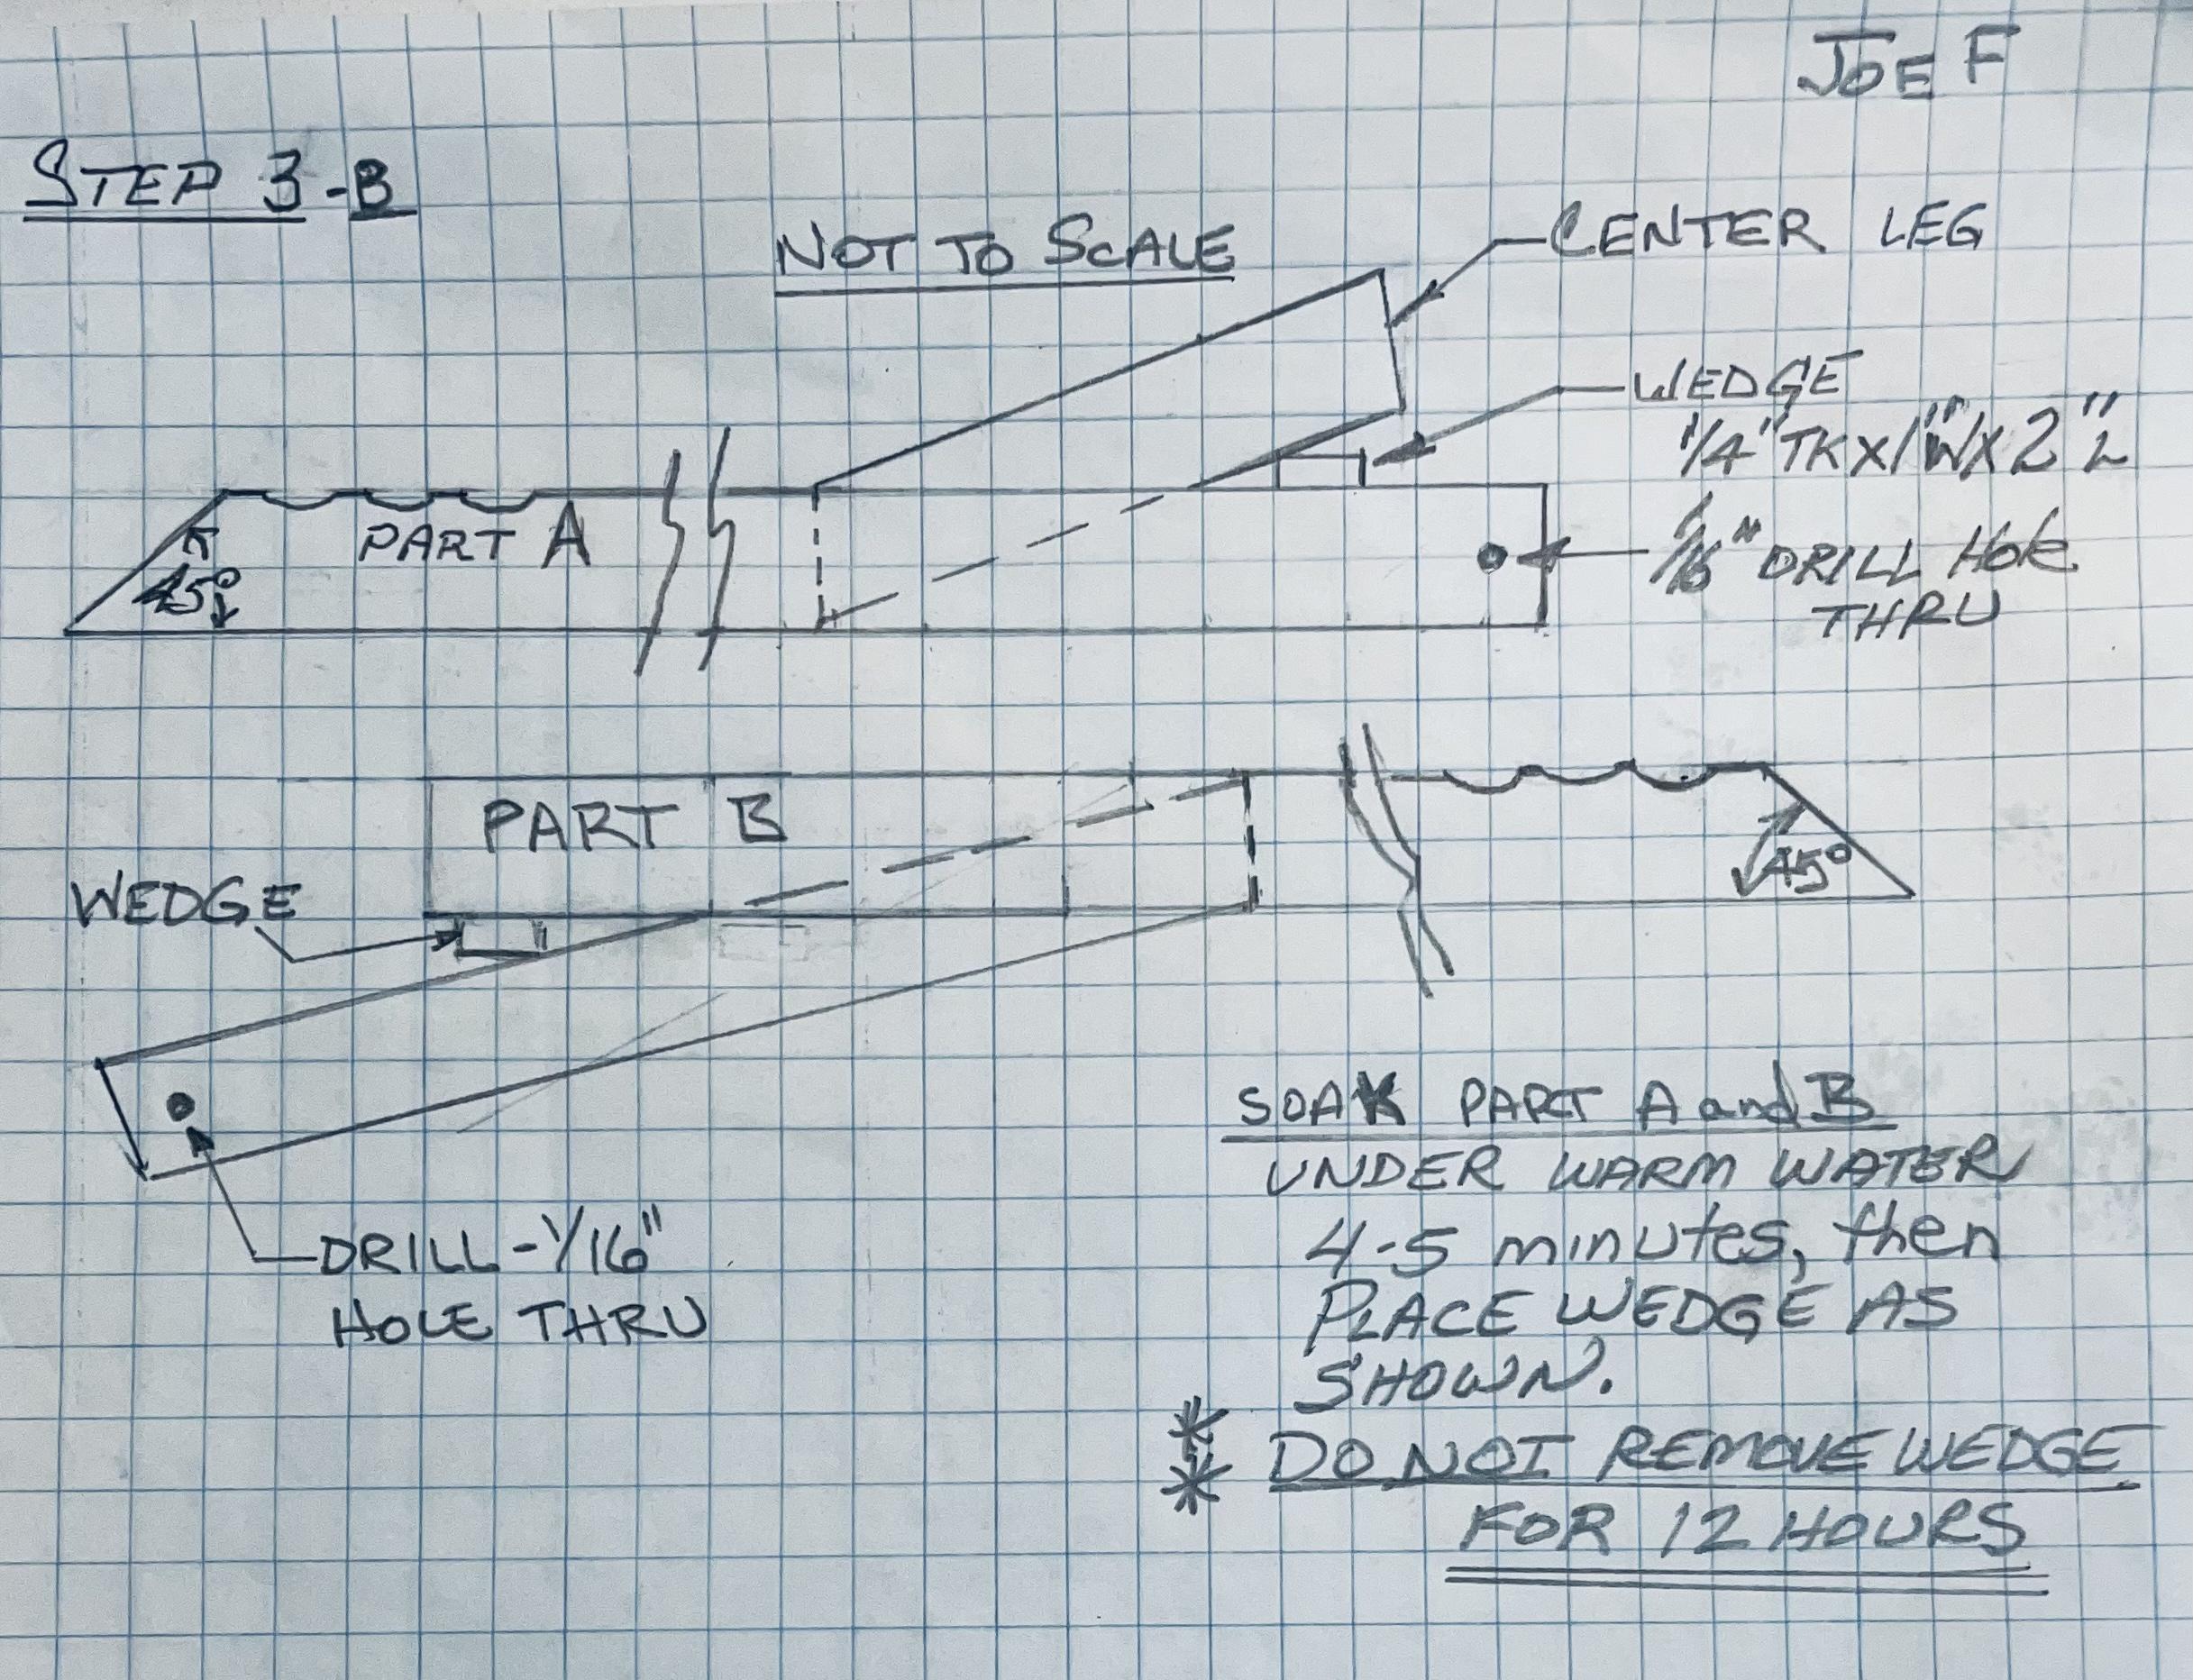 JOE F
STEP 3-B
NOT TO SCALE
CENTER LEG
WEDGE
1/4" TK X 1"W X 2" L
PART A
45°
1/16" DRILL HOLE
THRU
PART B
45°
WEDGE
DRILL - 1/16"
HOLE THRU
SOAK PART A and B
UNDER WARM WATER
4-5 minutes, then
PLACE WEDGE AS
SHOWN.
* DO NOT REMOVE WEDGE
* FOR 12 HOURS